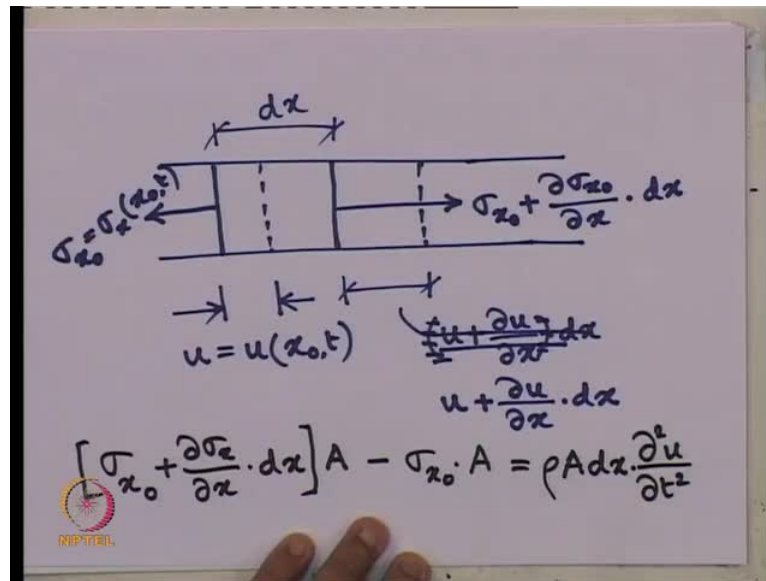 dx
σx₀ = σx(x₀,t)
σx₀ + ∂σx₀/∂x · dx
u = u(x₀,t)
u + ∂u/∂x · dx
[σx₀ + ∂σx/∂x · dx] A − σx₀ · A = ρAdx · ∂²u/∂t²
NPTEL